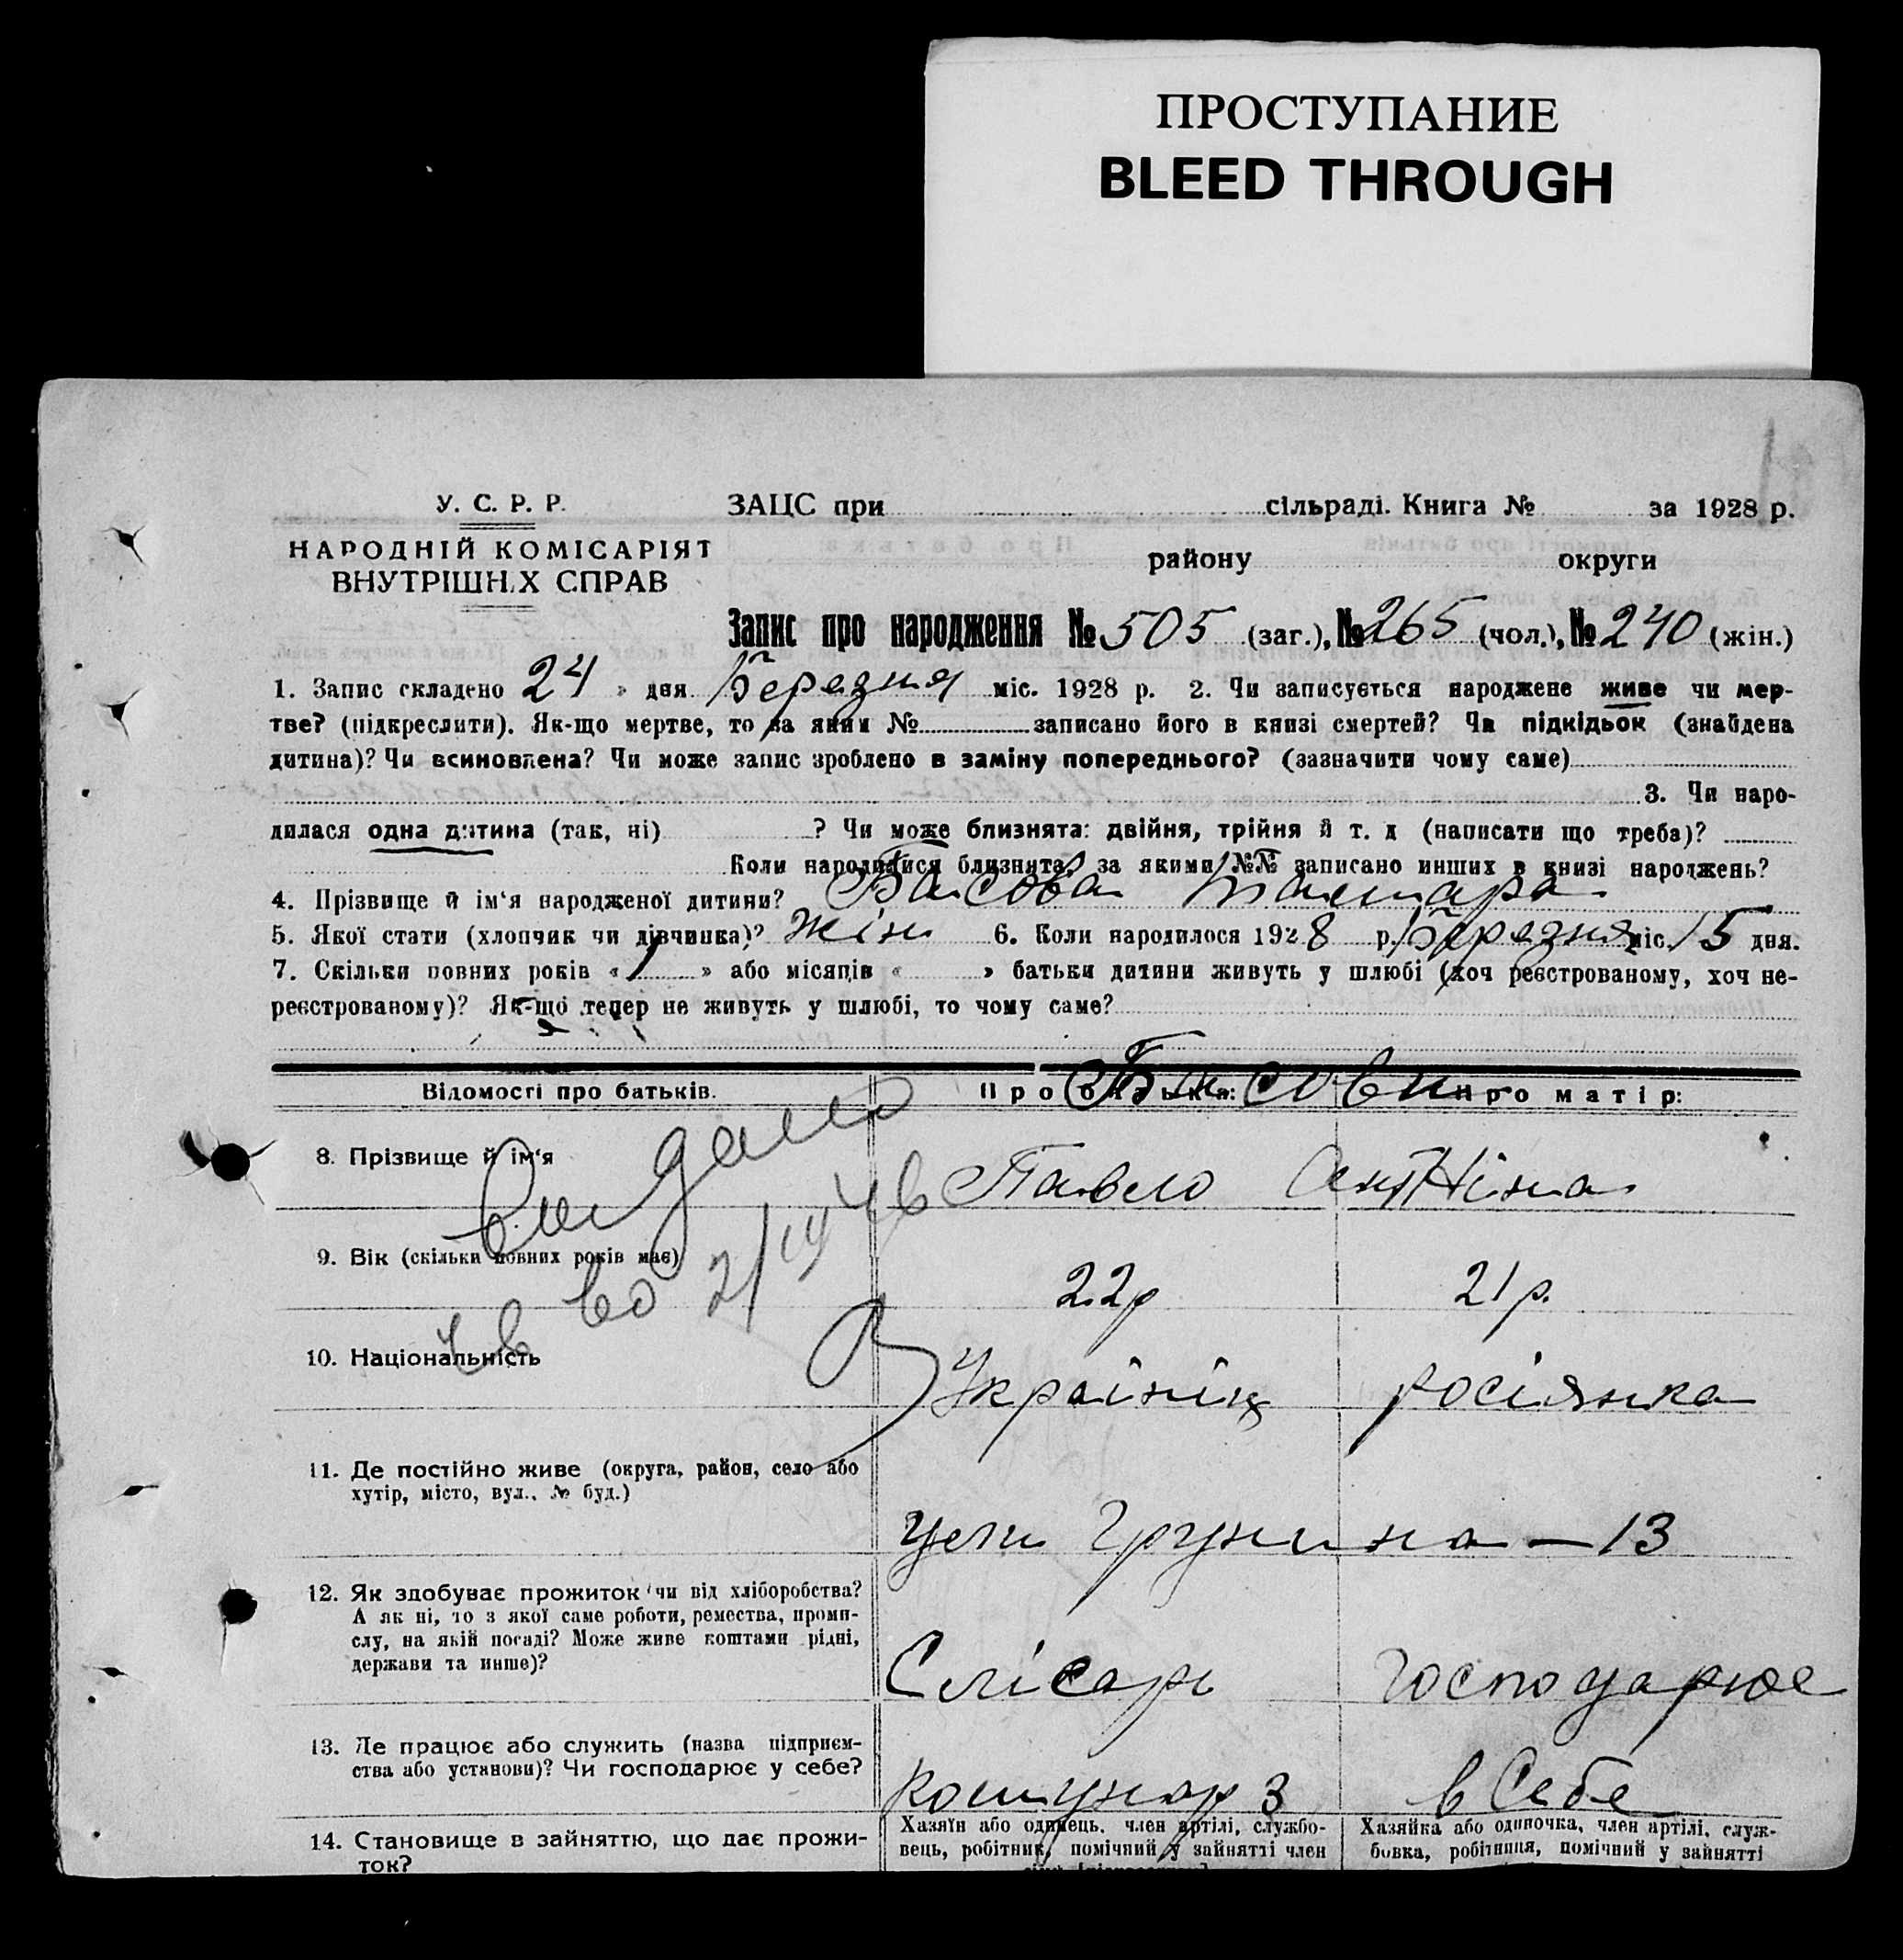 ПРОСТУПАНИЕ
BLEED THROUGH
У. С. Р. Р.
НАРОДНІЙ КОМІСАРІЯТ
ВНУТРІШНІХ СПРАВ
ЗАЦС при сільраді. Книга № за 1928 р.
району округи
Запис про народження № 505 (заг.), № 265 (чол.), № 240 (жін.)
1. Запис складено 24 » дня Березня міс. 1928 р. 2. Чи записується народжене живе чи мер-
тве? (підкреслити). Як-що мертве, то за яким № записано його в книзі смертей? Чи підкідьок (знайдена
дитина)? Чи всиновлена? Чи може запис зроблено в заміну попереднього? (зазначити чому саме)
3. Чи наро-
дилася одна дитина (так, ні) ? Чи може близнята: двійня, трійня й т. д (написати що треба)?
Коли народилися близнята, за якими №№ записано инших в книзі народжень?
4. Прізвище й ім'я народженої дитини? Басова Тамара
5. Якої стати (хлопчик чи дівчинка)? Жіно 6. Коли народилося 1928 р. Березня міс. 15 дня.
7. Скільки повних років « 1 » або місяців « » батьки дитини живуть у шлюбі (хоч реєстрованому, хоч не-
реєстрованому)? Як-що тепер не живуть у шлюбі, то чому саме?
Відомості про батьків. Про батька: Про матір:
Басови
8. Прізвище й ім'я Павло Антніна
Видано
св во 2/IV 46
9. Вік (скільки повних років має) 22р 21р.
10. Національність Українец росіянка
11. Де постійно живе (округа, район, село або
хутір, місто, вул., № буд.)
13
12. Як здобуває прожиток чи від хліборобства?
А як ні, то з якої саме роботи, ремества, проми-
слу, на якій посаді? Може живе коштами рідні,
держави та инше)?
Слісарь Господарює
13. Де працює або служить (назва підприєм-
ства або установи)? Чи господарює у себе?
Комунар 3 в Себе
14. Становище в зайняттю, що дає прожи-
ток?
Хазяїн або одинець, член артілі, службо-
вець, робітник, помічний у зайнятті член
Хазяйка або одиночка, член артілі, служ-
бовка, робітниця, помічний у зайнятті